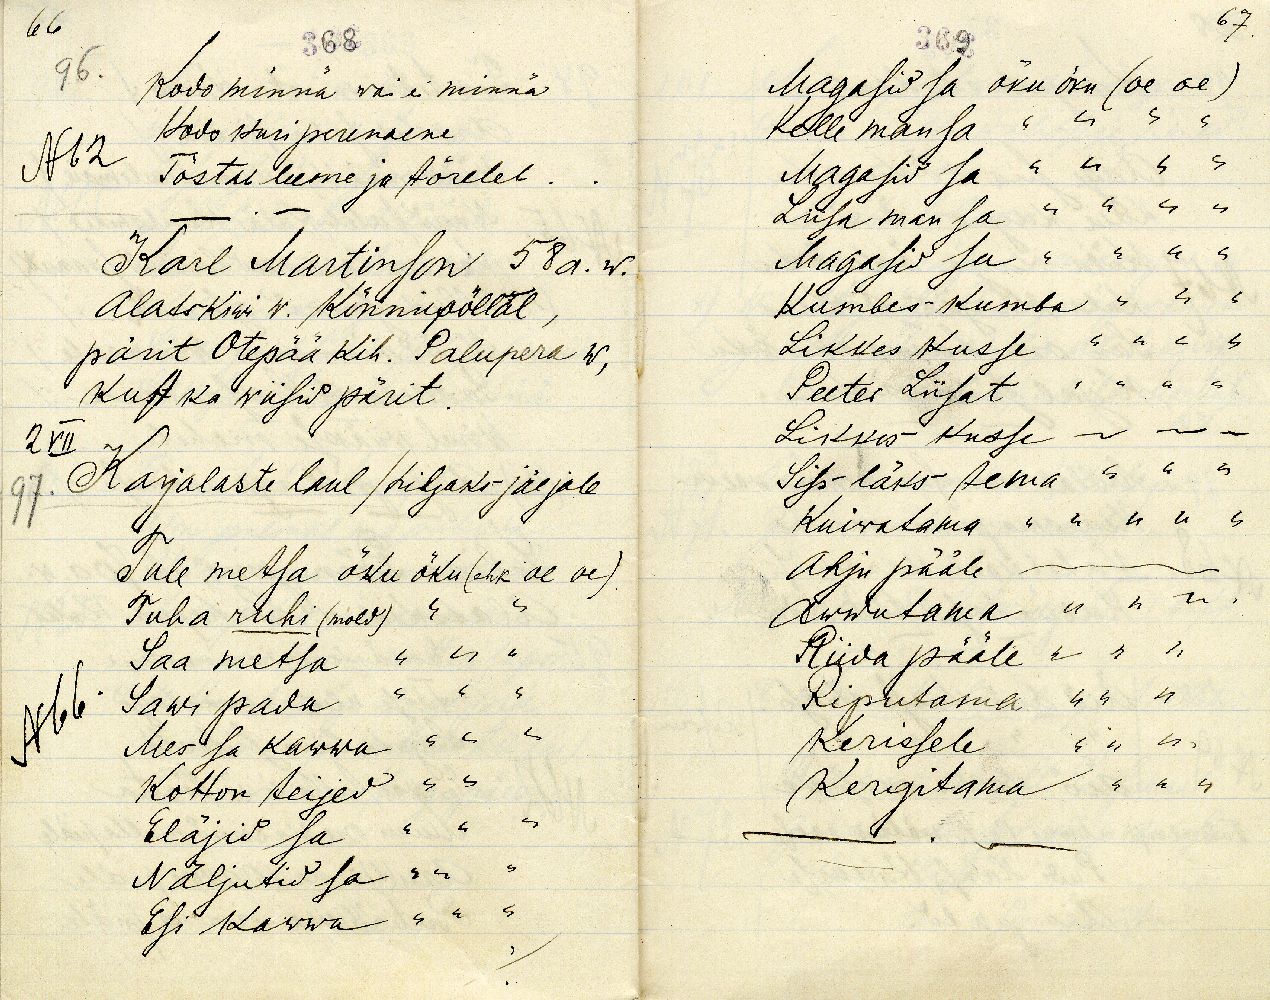 66
368
96.
Kodo minnä wai ei minnä
Kodo kuri perenaene
N62
Tõstab leeme ja tõreleb . .
Karl Martinson 58 a. w.
Alatskiwi w. Könnupõllal,
pärit Otepää kih. Palupera w,
kust ka wiisid pärit.
2 VII
97. Karjalaste laul /hiljaks-jäejale
Tule metsa õku õku (ehk oe oe).
Tuha ruhi (mold) " "
Saa metsa " " "
N66.
Sawi pada " " "
Mes sa kawwa " " "
Kotton teijed " "
Eläjid sa " " "
Näljutid sa " " "
Esi kawwa " " "
369
67.
Magasid sa õku õku (oe oe)
Kelle man sa " " " "
Magasid sa " " " "
Liisa man sa " " " "
Magasid sa " " " "
Kumbes-kumba " " "
Likkes kusse " " " "
Peeter Liisat " " " "
Likkes kusse
Siss-läks-tema " " "
Kuiwatama " " " " "
Ahju pääle
Lawwutama " " "
Riida pääle " " "
Riputama " " "
Kerissele " " "
Kergitama " " "